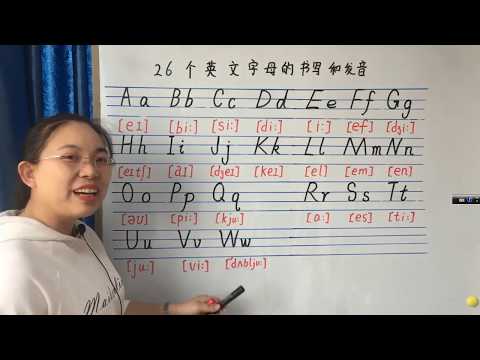 26个英文字母的书写和发音
Aa Bb Cc Dd Ee Ff Gg
[eɪ] [bi:] [si:] [di:] [i:] [ef] [dʒi:]
Hh Ii Jj Kk Ll Mm Nn
[eɪtʃ] [aɪ] [dʒeɪ] [keɪ] [el] [em] [en]
Oo Pp Qq Rr Ss Tt
[əʊ] [pi:] [kju:] [a:] [es] [ti:]
Uu Vv Ww
[ju:] [vi:] ['dʌblju:]